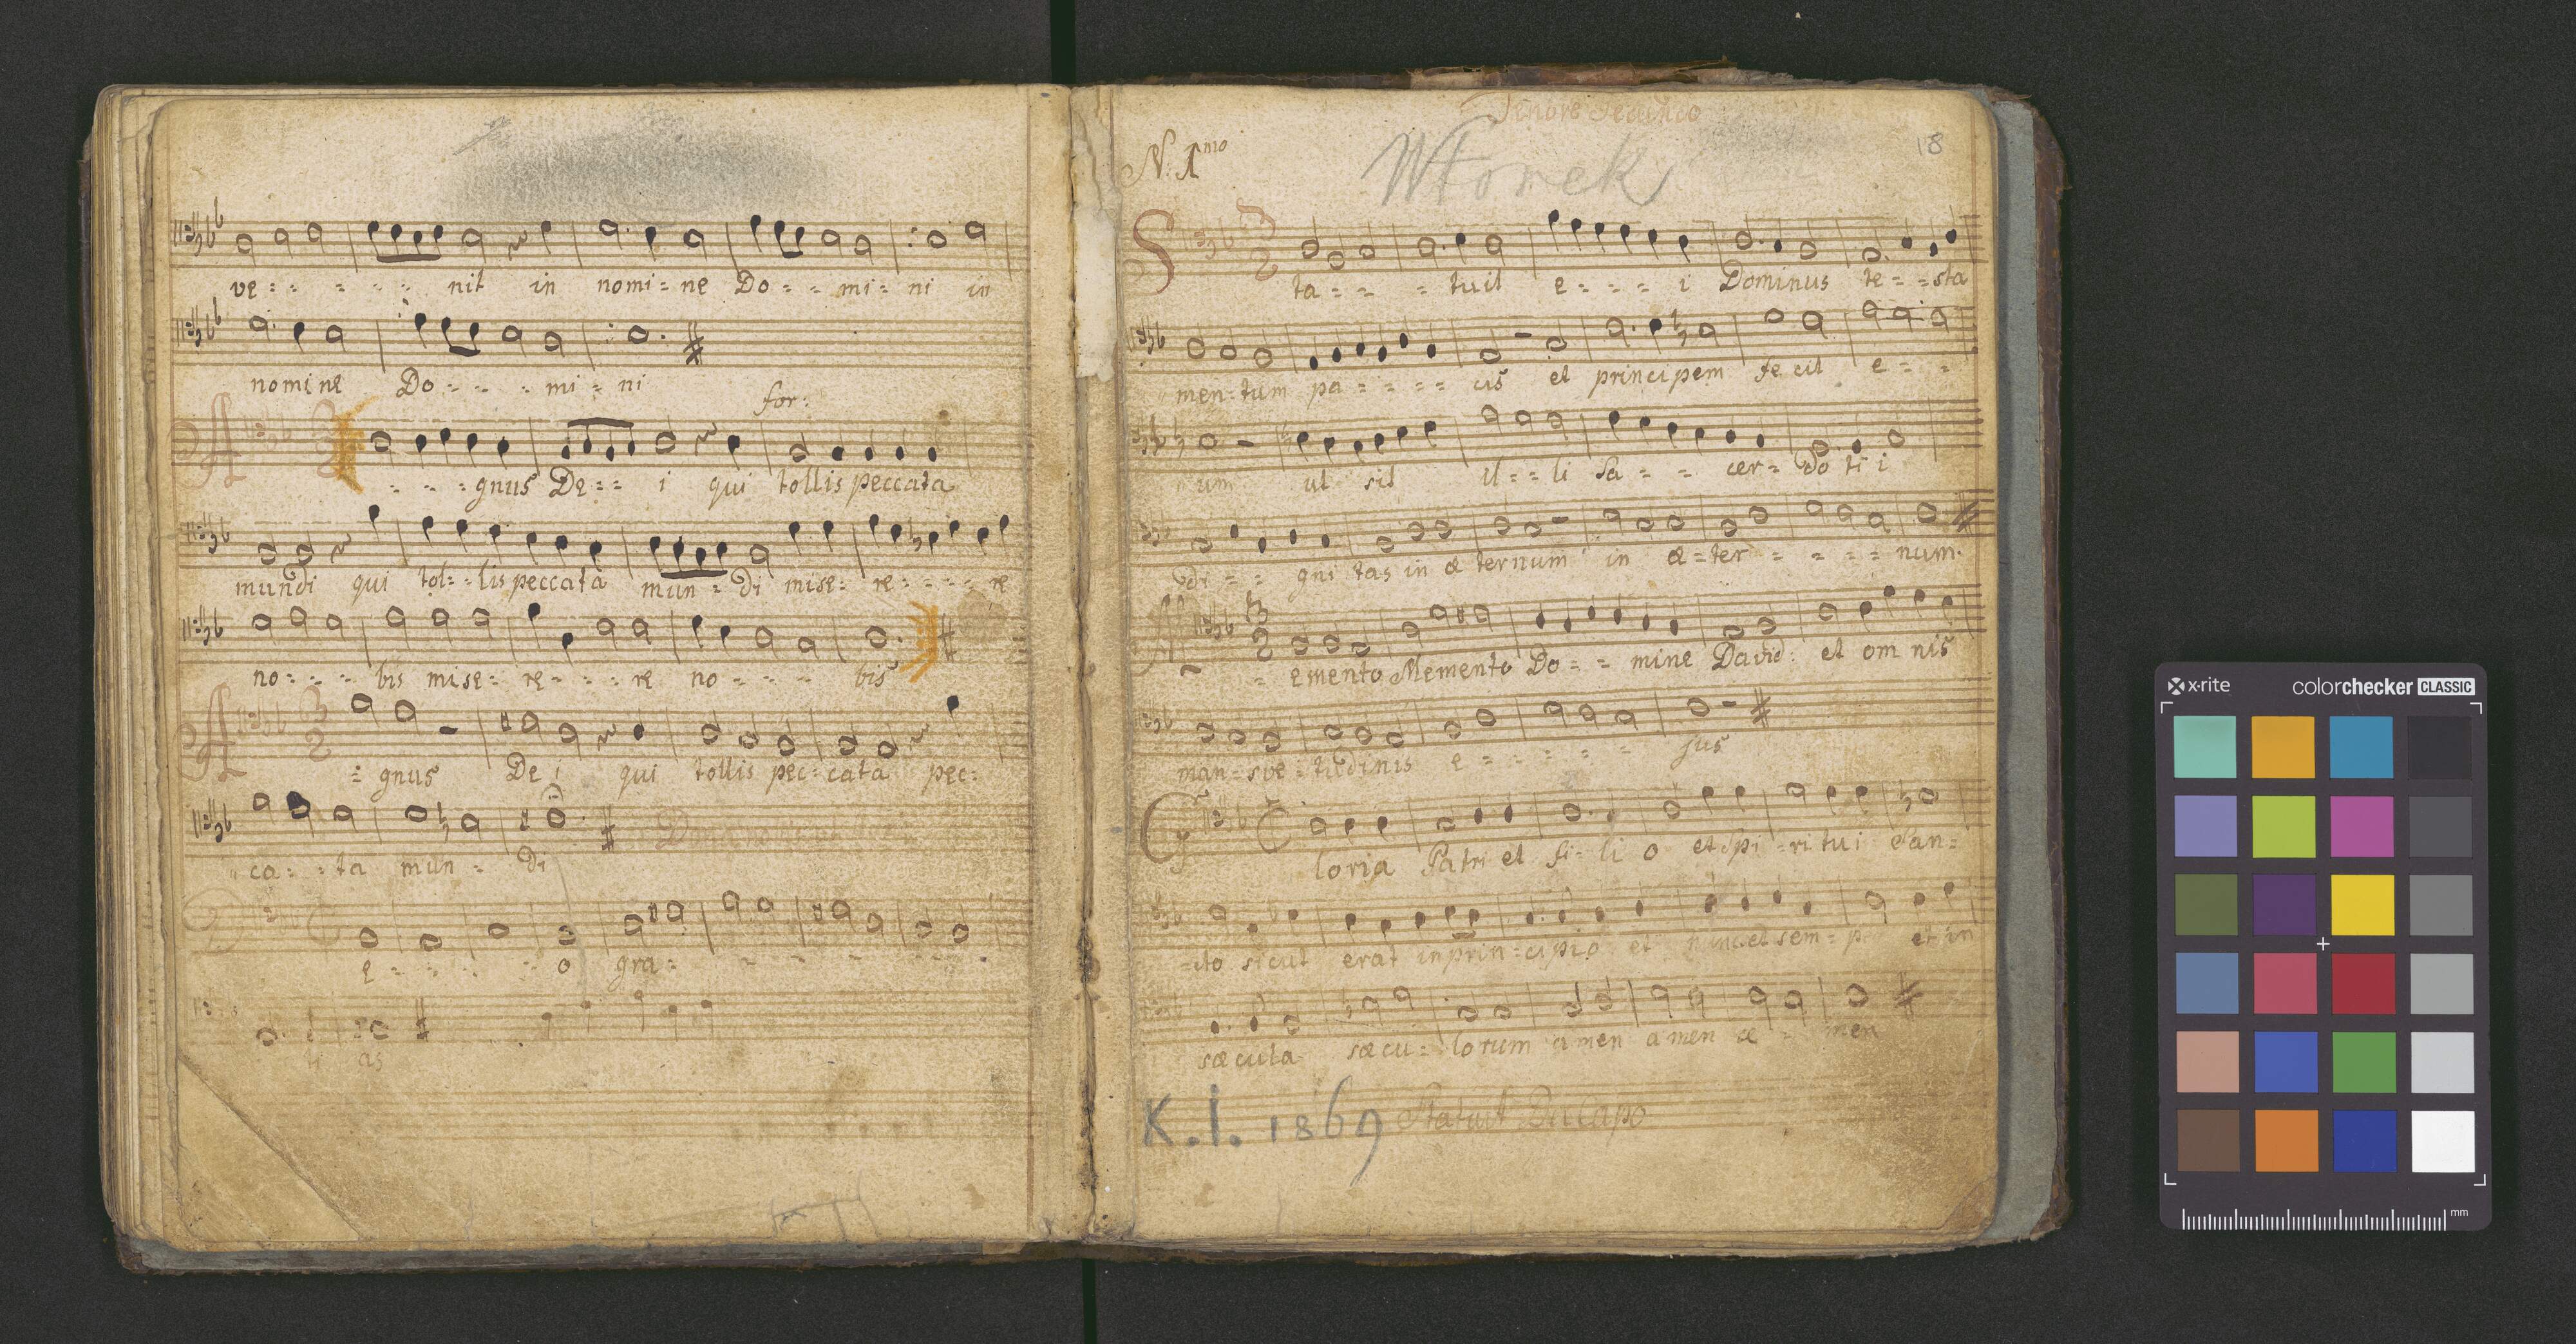 ve : - - - - nit in nomi = ne Do - - mi = ni in
nomine Do - - - mi = ni
for:
A - - - gnus De = - i qui tollis peccata
mundi qui tol = - lis peccata mun = di mise = re - - - - re
no = - - bis mise = re - - - re no - - - bis
A = gnus De i qui tollis pec = cata pec =
ca - - ta mun - di
e - - - - o gra = - - - - -
ti as
Tenore Secundo
N. 1mo
Wtorek
18
S ta = - - tuit e - - - i Dominus te - - sta
men = tum pa - - - - cis et principem fe cit e - -
um ut sit il = - li Sa - - cer = do ti i
di - - gni tas in æ ternum in æ = ter - - - - num.
M - emento Memento Do = - mine David: et om nis
man = sve = tudinis e - - - - - jus
G loria Patri et fi = li o et Spi = ri tui San =
cto sicut erat in prin = cipio et nunc et sem = p et in
sæcula sæcu = lorum amen amen a - men
K. I. 1869 Statuit Da Capo
x-rite colorchecker CLASSIC
mm